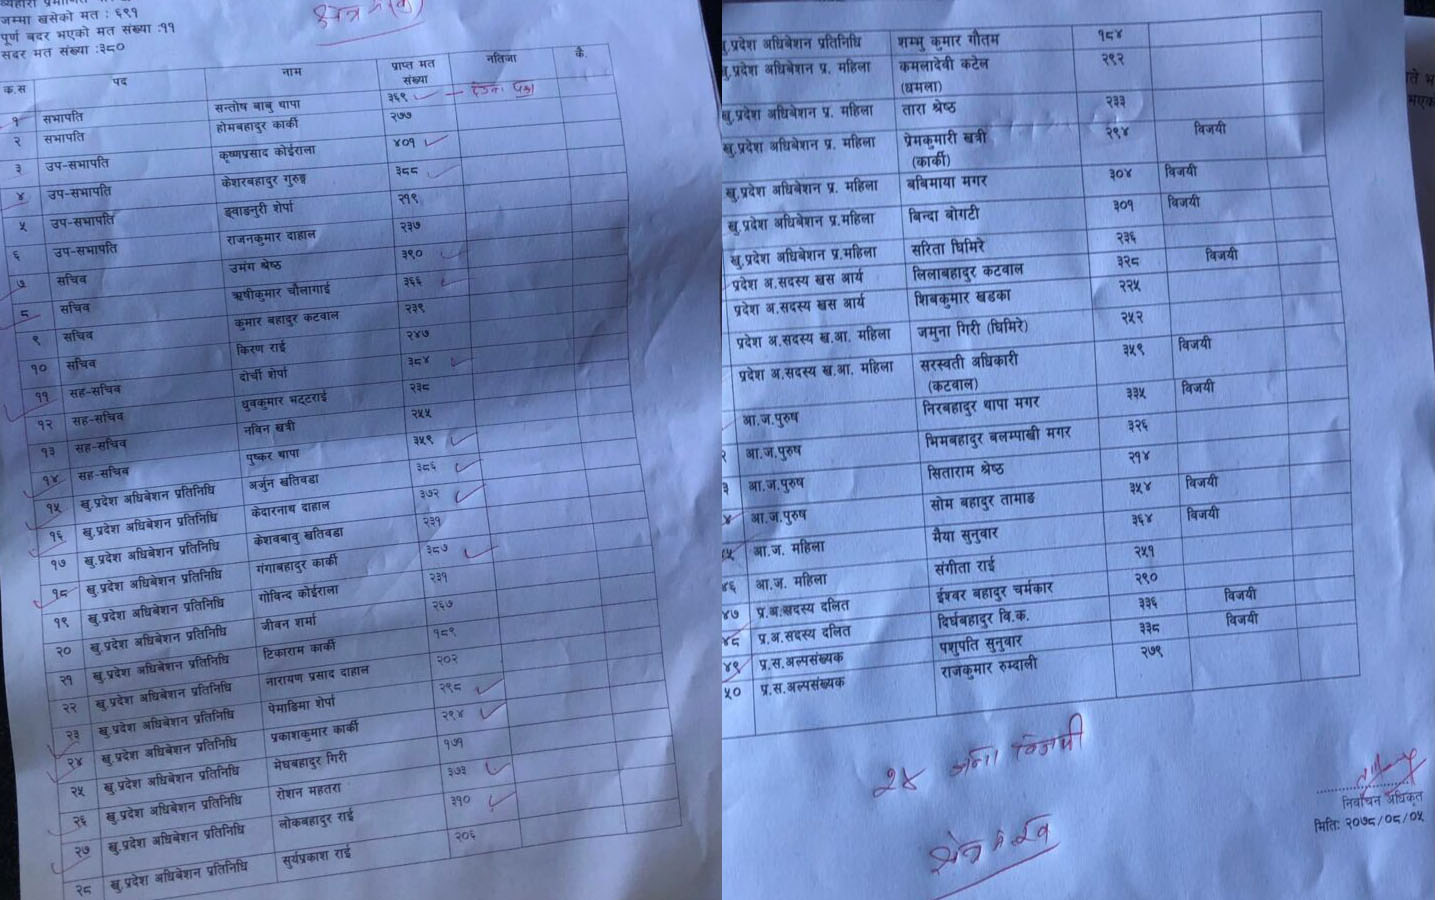 जम्मा खसेको मत : ६९१
पूर्ण बदर भएको मत संख्या :११
सदर मत संख्या :३८०
क.स पद नाम प्राप्त मत संख्या नतिजा कै.
१ सभापति सन्तोष बाबु थापा ३६९
२ सभापति होमबहादुर कार्की २७७
३ उप-सभापति कृष्णप्रसाद कोईराला ४०१
४ उप-सभापति केशरबहादुर गुरुङ ३८८
५ उप-सभापति ङ्वाङनुरी शेर्पा २१९
६ उप-सभापति राजनकुमार दाहाल २३७
७ सचिव उमंग श्रेष्ठ ३९०
८ सचिव ऋषीकुमार चौलागाई ३६६
९ सचिव कुमार बहादुर कटवाल २३९
१० सचिव किरण राई २४७
११ सह-सचिव दोर्ची शेर्पा ३८४
१२ सह-सचिव धुवकुमार भट्टराई २३८
१३ सह-सचिव नविन खत्री २५५
१४ सह-सचिव पुष्कर थापा ३५९
१५ खु.प्रदेश अधिबेशन प्रतिनिधि अर्जुन खतिवडा ३८६
१६ खु.प्रदेश अधिबेशन प्रतिनिधि केदारनाथ दाहाल ३७२
१७ खु.प्रदेश अधिबेशन प्रतिनिधि केशवबाबु खतिवडा २३१
१८ खु.प्रदेश अधिबेशन प्रतिनिधि गंगाबहादुर कार्की ३८७
१९ खु.प्रदेश अधिबेशन प्रतिनिधि गोविन्द कोईराला २३१
२० खु.प्रदेश अधिबेशन प्रतिनिधि जीवन शर्मा २६७
२१ खु.प्रदेश अधिबेशन प्रतिनिधि टिकाराम कार्की १८९
२२ खु.प्रदेश अधिबेशन प्रतिनिधि नारायण प्रसाद दाहाल २०२
२३ खु.प्रदेश अधिबेशन प्रतिनिधि पेमाङिमा शेर्पा २९८
२४ खु.प्रदेश अधिबेशन प्रतिनिधि प्रकाशकुमार कार्की २९४
२५ खु.प्रदेश अधिबेशन प्रतिनिधि मेघबहादुर गिरी १७१
२६ खु.प्रदेश अधिबेशन प्रतिनिधि रोशन महतरा ३७३
२७ खु.प्रदेश अधिबेशन प्रतिनिधि लोकबहादुर राई ३१०
२८ खु.प्रदेश अधिबेशन प्रतिनिधि सुर्यप्रकाश राई २०६
खु.प्रदेश अधिबेशन प्रतिनिधि शम्भु कुमार गौतम १८४
खु.प्रदेश अधिबेशन प्र. महिला कमलादेवी कटेल २९२
(घमला)
खु.प्रदेश अधिबेशन प्र. महिला तारा श्रेष्ठ २३३
खु.प्रदेश अधिबेशन प्र. महिला प्रेमकुमारी खत्री २९४ विजयी
(कार्की)
खु.प्रदेश अधिबेशन प्र. महिला बबिमाया मगर ३०४ विजयी
खु.प्रदेश अधिबेशन प्र.महिला बिन्दा बोगटी ३०१ विजयी
खु.प्रदेश अधिबेशन प्र.महिला सरिता घिमिरे २३६
प्रदेश अ.सदस्य खस आर्य लिलाबहादुर कटवाल ३२८ विजयी
प्रदेश अ.सदस्य खस आर्य शिबकुमार खडका २२५
प्रदेश अ.सदस्य ख.आ. महिला जमुना गिरी (घिमिरे) २५२
प्रदेश अ.सदस्य ख.आ. महिला सरस्वती अधिकारी ३५९ विजयी
(कटवाल)
आ.ज.पुरुष निरबहादुर थापा मगर ३३५ विजयी
आ.ज.पुरुष भिमबहादुर बलम्पाखी मगर ३२६
आ.ज.पुरुष सिताराम श्रेष्ठ २१४
आ.ज.पुरुष सोम बहादुर तामाङ ३५४ विजयी
आ.ज. महिला मैया सुनुवार ३६४ विजयी
४६ आ.ज. महिला संगीता राई २५१
४७ प्र.अ.सदस्य दलित ईश्वर बहादुर चर्मकार २९०
४८ प्र.अ.सदस्य दलित दिर्घबहादुर वि.क. ३३६ विजयी
४९ प्र.स.अल्पसंख्यक पशुपति सुनुवार ३३८ विजयी
५० प्र.स.अल्पसंख्यक राजकुमार रुम्दाली २७९
२४ जना विजयी
निर्वाचन अधिकृत
मिति: २०७८/०८/०५